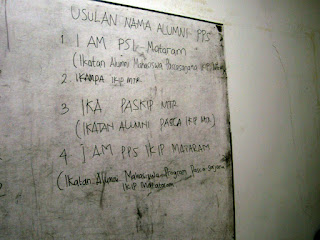 USULAN NAMA ALUMNI PPS
1. I AM PSI Mataram
(Ikatan Alumni Mahasiswa Pascasarjana IKIP
2. IKAMPA IKIP MTR
3 IKA PASKIP MTR
(IKATAN ALUMNI PASCA IKIP MTR)
4. JAM PPS IKIP MATARAM
(Ikatan Alumni Mahasiswa Program Pascasarjana
IKIP MATARAM)